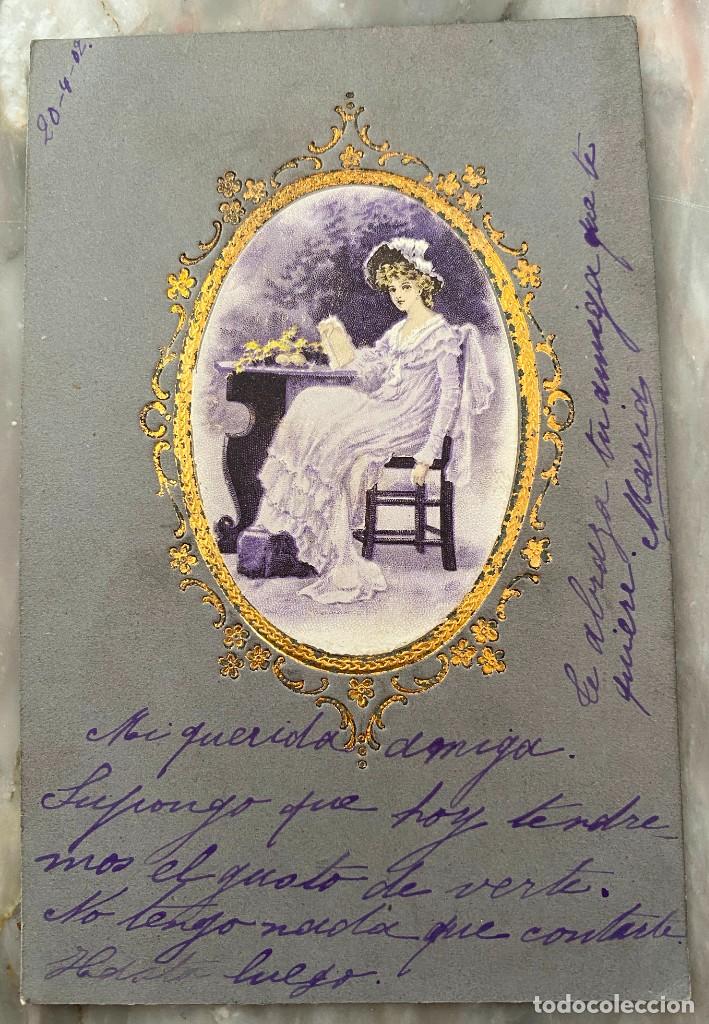 20-6-02.
Mi querida amiga.
Supongo que hoy tendre-
mos el gusto de verte.
No tengo nada que contarte.
Hasta luego.
Te abraza tu amiga que te
quiere. Maria
todocoleccion